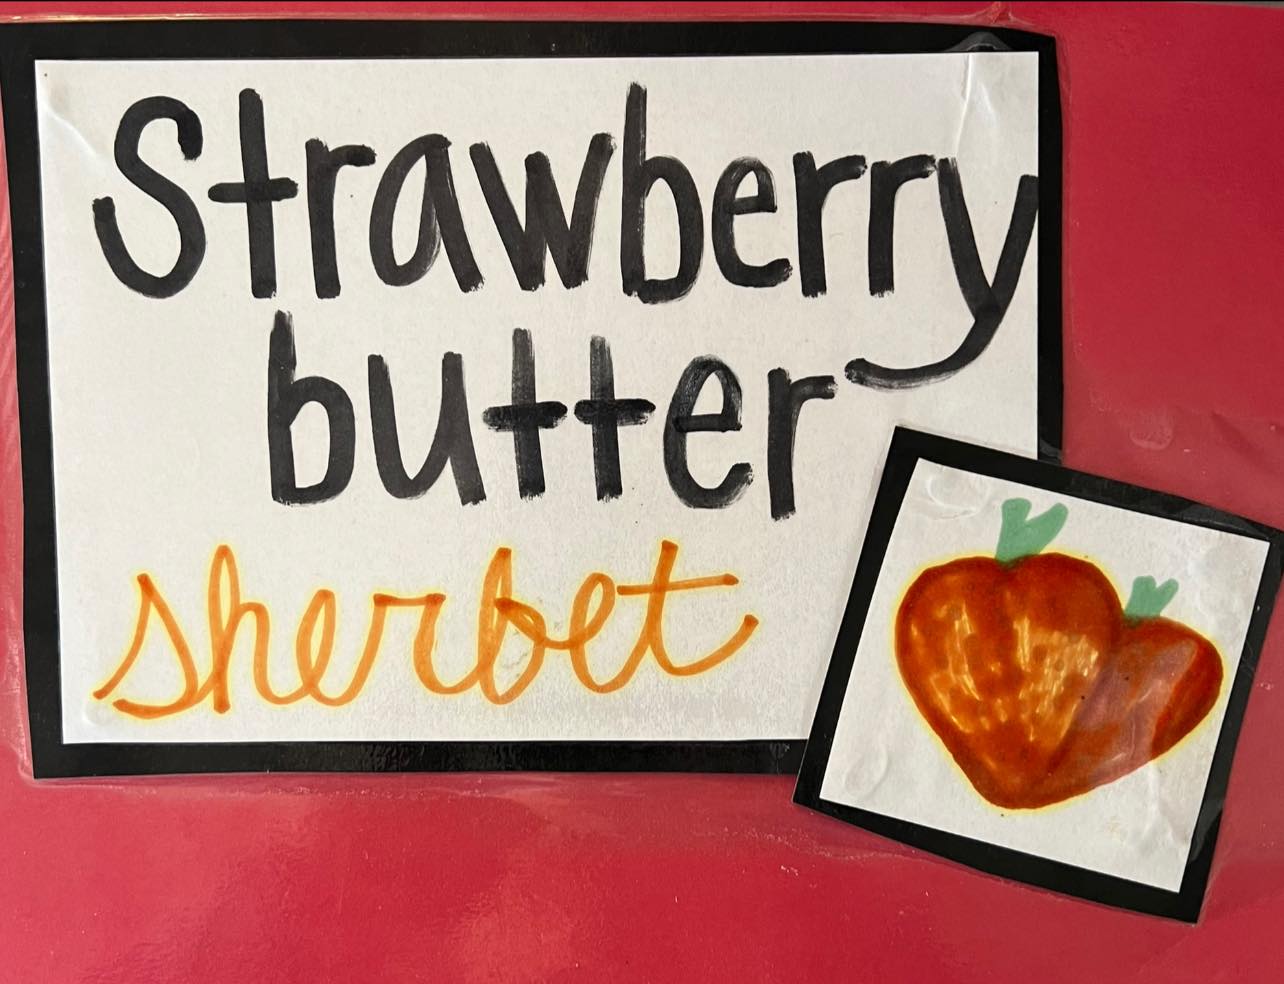 Strawberry
butter
sherbet